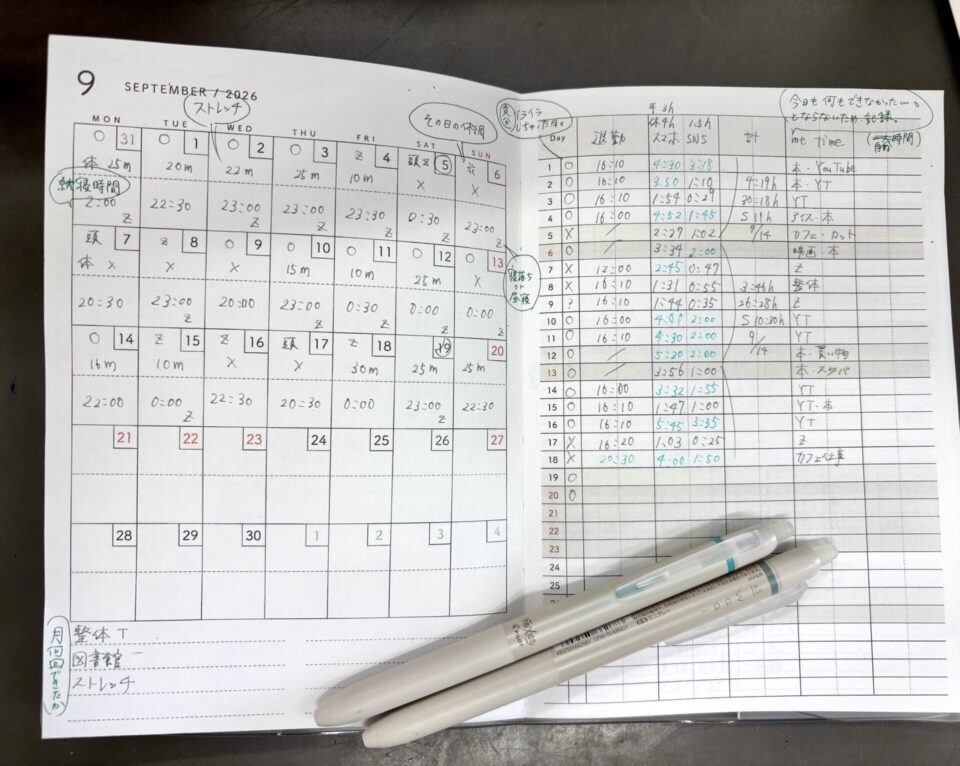 9 SEPTEMBER / 2026
ストレッチ
その日の体調
MON TUE WED THU FRI SAT SUN
○ 31 ○ 1 ○ 2 ○ 3 Z 4 頭Z 5 6
体 25m 20m 22m 25m 10m X X
就寝時間
2:00 22:30 23:00 23:00 23:30 0:30 23:00
Z Z Z Z
頭 7 Z 8 ○ 9 ○ 10 ○ 11 ○ 12 ○ 13
体 X X X 15m 10m 25m X
寝落ち
or
昼寝
20:30 23:00 20:00 23:00 0:30 0:00 0:00
Z Z Z Z Z
○ 14 Z 15 Z 16 頭 17 Z 18 19 20
16m 10m X X 30m 25m 25m
22:00 0:00 22:30 20:30 0:00 23:00 22:30
Z Z
21 22 23 24 25 26 27
28 29 30 1 2 3 4
月何回できたか
整体 T
図書館 一
ストレッチ
イライラ
しちゃった日X
平 3h
休4h 1.5h
今日も何もできなかった…
とならないため、記録。
Day 退勤 スマホ SNS 計 me Time.
1 ○ 16:10 4:30 3:18 本・YouTube
2 ○ 16:10 3:50 1:10 4:19h 本・YT
3 ○ 16:10 1:54 0:29 30:18h YT
4 ○ 16:00 4:52 1:45 アイス・本
5 X / 2:27 1:02 /14 カフェ・カット
6 ○ / 3:34 2:00 映画・本
7 X 12:00 2:45 0:47 Z
8 X 16:10 1:31 0:55 3:46h 整体
9 ? 16:10 1:44 0:35 26:28h Z
10 ○ 16:00 4:01 2:00 S 10:30h YT
11 ○ 16:10 4:30 2:00 9/ YT
12 ○ / 5:20 2:00 14 本・買い物
13 ○ / 3:56 1:00 本・スタバ
14 ○ 16:00 3:32 1:55 YT
15 ○ 16:10 1:47 1:00 YT・本
16 ○ 16:10 5:45 3:35 YT
17 X 16:20 1:03 0:25 Z
18 X 20:30 4:00 1:50 カフェ仕事
19 ○
20 ○
21
22
23
24
25
PILOT
JAPAN